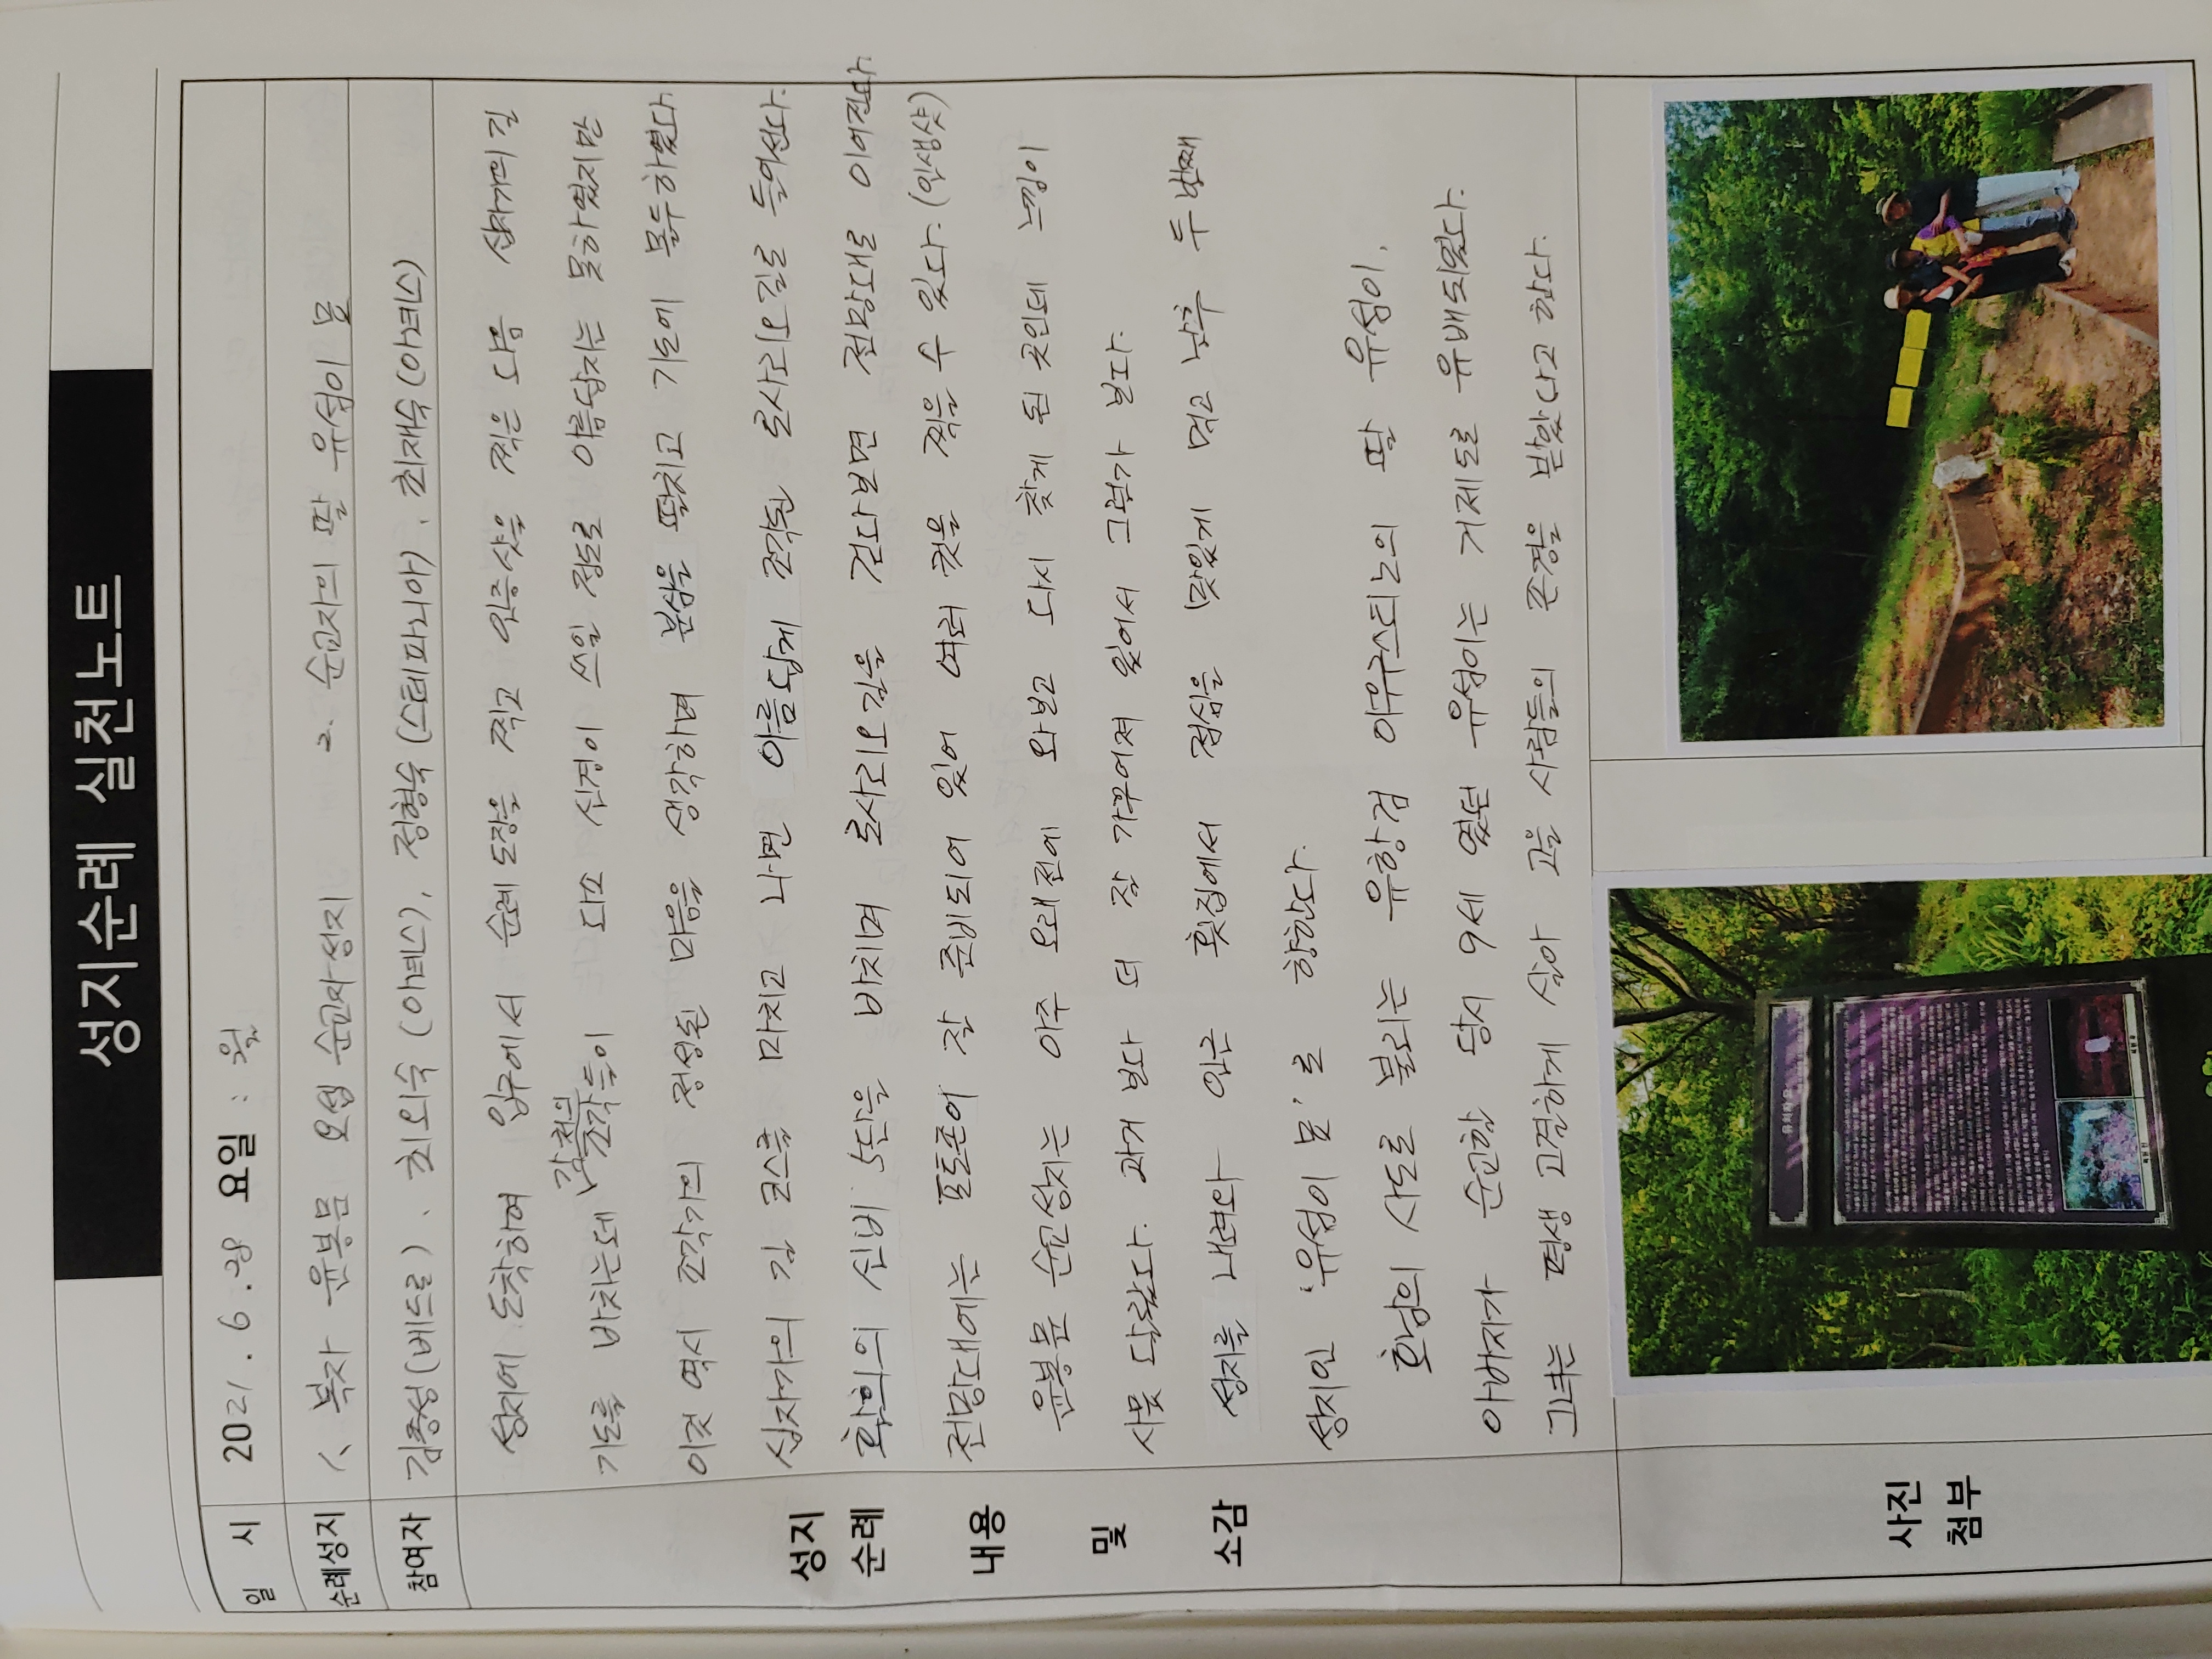 성지순례 실천노트
일 시 2021. 6. 28 요일 : 월
순례성지 1. 복자 윤봉문 요셉 순교자성지 2. 순교자의 딸 유섬이 묘
참여자 김종성(베드로), 최외숙(아녜스), 정형숙(스테파니아), 최재숙(아녜스)
성지순례 내용 및 소감
성지에 도착하여 입구에서 순례도장을 찍고 인증샷을 찍은 다음 십자가의 길
기도를 바치는데 각처의 조각들이 다소 신경이 쓰일 정도로 아름답지는 못하였지만
이것 역시 조각가의 정성된 마음을 생각하며 분심을 떨치고 기도에 몰두하였다.
십자가의 길 코스를 마치고 나면 아름답게 조각된 로사리오길로 들어선다.
환희의 신비 5단을 바치며 로사리오길을 걷다보면 전망대로 이어진다.
전망대에는 포토존이 잘 준비되어 있어 여러 컷을 찍을 수 있다. (인생샷)
윤봉문 순교성지는 아주 오래전에 와보고 다시 찾게 된 곳인데 느낌이
사뭇 달랐다. 과거 보다 더 잘 가꾸어져 있어서 그런가 보다.
성지를 내려와 인근 횟집에서 점심을 맛있게 먹고 난후 두 번째
성지인 '유섬이 묘'로 향한다.
호남의 사도로 불리는 유항검 아우구스티노의 딸 유섬이,
아버지가 순교할 당시 9세 였던 유섬이는 거제도로 유배되었다.
그녀는 평생 고결하게 살아 고을 사람들의 존경을 받았다고 한다.
사진
첨부